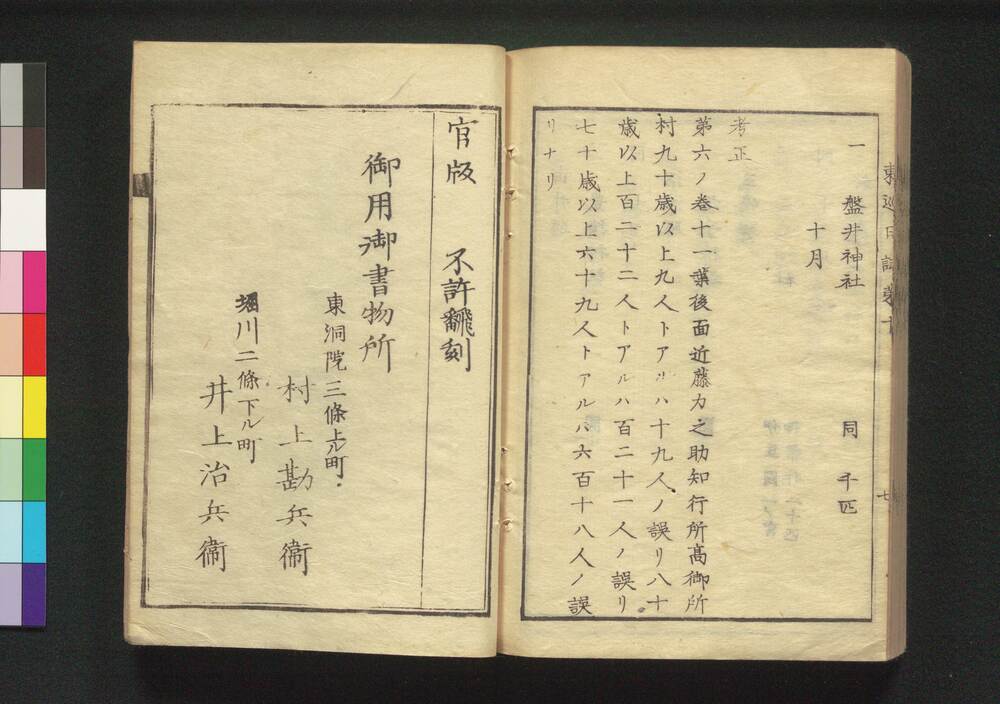 東巡日誌第十
一 盤井神社 同 千匹
十月
考正
第六ノ巻十一葉後面近藤力之助知行所高御所
村九十歳以上九人トアルハ十九人ノ誤リ八十
歳以上百二十二人トアルハ百二十一人ノ誤リ
七十歳以上六十九人トアルハ六百十八人ノ誤
リナリ
七
官版 不許飜刻
御用御書物所
東洞院三條上ル町
村上勘兵衞
堀川二條下ル町
井上治兵衞